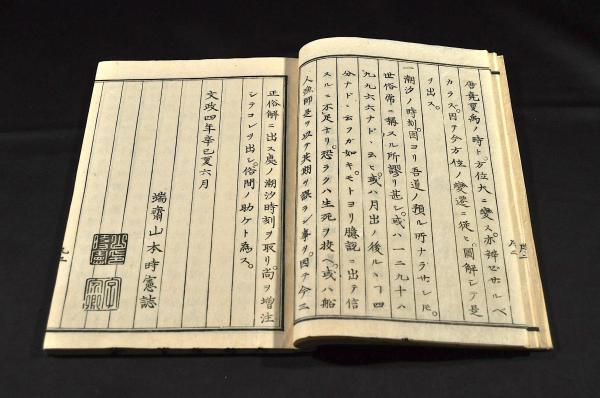 唐堯夏禹ノ時ト方位大ニ變ス亦辨ゼザルベ
カラズ因テ今方位ノ變遷ニ從ヒ圖解シテ是
ヲ出ス。
一潮汐ノ時刻固ヨリ吾道ノ預ル所ナラザレ𪜈。
世俗常ニ稱スル所謬リ甚シ或ハ一二九十ハ
九九六六ナド、云ヒ或ハ月出ノ後ル、ヿ四
分ナド、云フガ如キモトヨリ臆説ニ出テ信
スルニ不足ナリ恐ラクハ生死ヲ挍ベ或ハ船
人漁師是ヲ以テ其期ヲ誤ラン事ヲ因テ今三
正俗解ニ出ス處ノ潮汐時刻ヲ取リ尚ヲ增注
シテコレヲ出シ俗間ノ助ケト為ス。
文政四年辛巳夏六月
端齋山本時憲誌